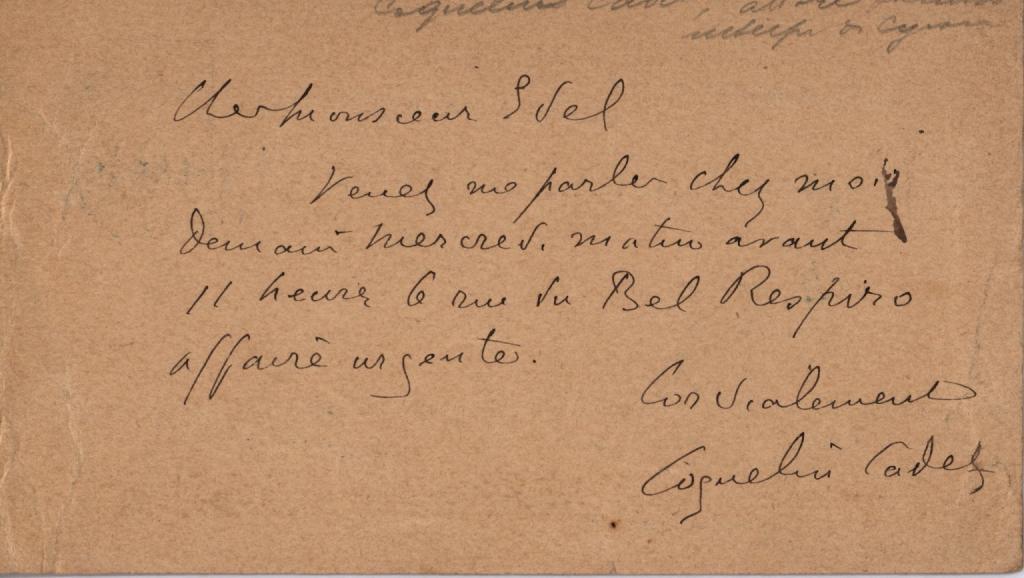 Cher Monsieur Edel
Venez me parler chez moi
demain mercredi matin avant
11 heures 6 rue du Bel Respiro
affaire urgente.
Cordialement
Coquelin Cadet